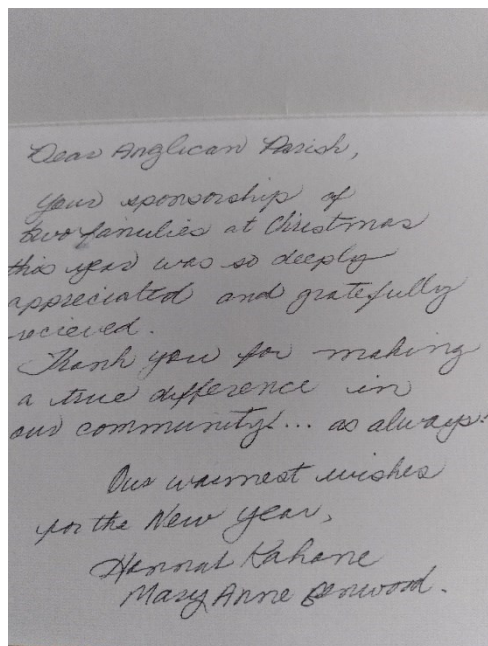 Dear Anglican Parish,
Your sponsorship of
two families at Christmas
this year was so deeply
appreciated and gratefully
recieved.
Thank you for making
a true difference in
our community!... as always!
Our warmest wishes
for the New Year,
Hannah Kahane
Mary Anne